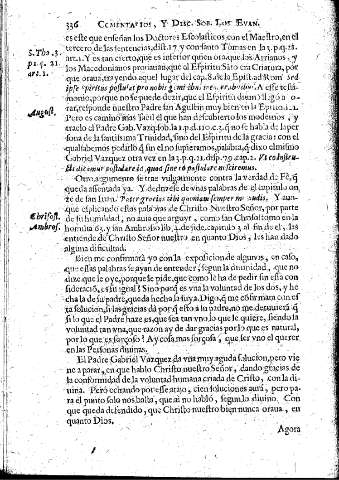 336 COMENTARIOS, Y DISC. SOB. LOS EVAN.
es este que enseñan los Doctores Escolasticos con el Maestro, en el
tercero de las sentencias, dist. 17. y con santo Tomas en la 3. p. q. 21.
art. 1. Y es tan cierto, que es inferior quien ora que los Arrianos, y
los Macedonianos prouauan, que el Espiritu Sāto era Criatura, por
que oraua, trayendo aquel lugar del cap. 8. de la Epist. ad Rom. Sed
ipse spiritus postulat pro nobis gemitibus
monio, porque no se puede dezir, que el Espiritu
rar, responde nuestro Padre san Agustin muy bien en la
Pero es camino mas facil el que han descubierto los modernos, y
traelo el Padre Gab. Vazq. sob. la 1. p. que no se habla de la per
sona de la santissima Trinidad, sino del Espiritu de la gracia: con el
qual
Gabriel Vazquez otra vez en la 3. p. q. 21. disp. 79. cap. 2.
dicemur postulare
Otro argumento se trae vulgarmente contra la verdad de Fè, q̃
queda assentada ya. Y de vnas palabras de el capitulo on
ze de san Iuan. Pater gracias tibi quoniam semper me audis. Y aun-
que esplicando estas palabras de Christo Nuestro Señor, por parte
de su humanidad, no auia que arguyr, como san Chrisostomo en la
homilia 63. y san Ambrosio lib. 4. de fide. capitulo 3. al fin de el, las
entiende de Christo Señor nuestro en quanto Dios, les han dado
alguna dificultad.
Bien me confirmarà yo con la exposicion de algunos, en caso,
que estas palabras se ayan de entender, segun la diuinidad, que no
dize que le oye, porque le pide, que como le ha de pedir en esta con
sideraciō, es su igual? Sino porq̃ es vna la voluntad de los dos, y he
cha la de su padre, queda hecha la suya. Digo, q̃ me cōfirmara con es
ta solucion, si las gracias dà por q̃ esto a su padre, no me detuuiera q̃
si lo que el Padre haze es, que sea tan vno lo que le quiere, siendo la
voluntad tan vna, que razon ay de dar gracias por lo que es natural,
por lo que es forçoso? Ay cosa mas forçosa, que ser vno el querer
en las Personas diuinas.
El Padre Gabriel Vazquez da vna muy aguda solucion, pero vie
ne a parar, en que hablò Christo nuestro Señor, dando gracias de
la conformidad de la voluntad humana criada de Cristo, con la di-
uina. Pero echando por esse atajo, cien soluciones aurà, pero pa-
ra el punto solo nos basta, que ai no hablò, segun lo diuino. Con
que queda defendido, que Christo nuestro bien nunca oraua, en
quanto Dios.
Agora
S. Tho. 3.
p. q. 21.
art. 1.
August.
Chrisost.
Ambros.